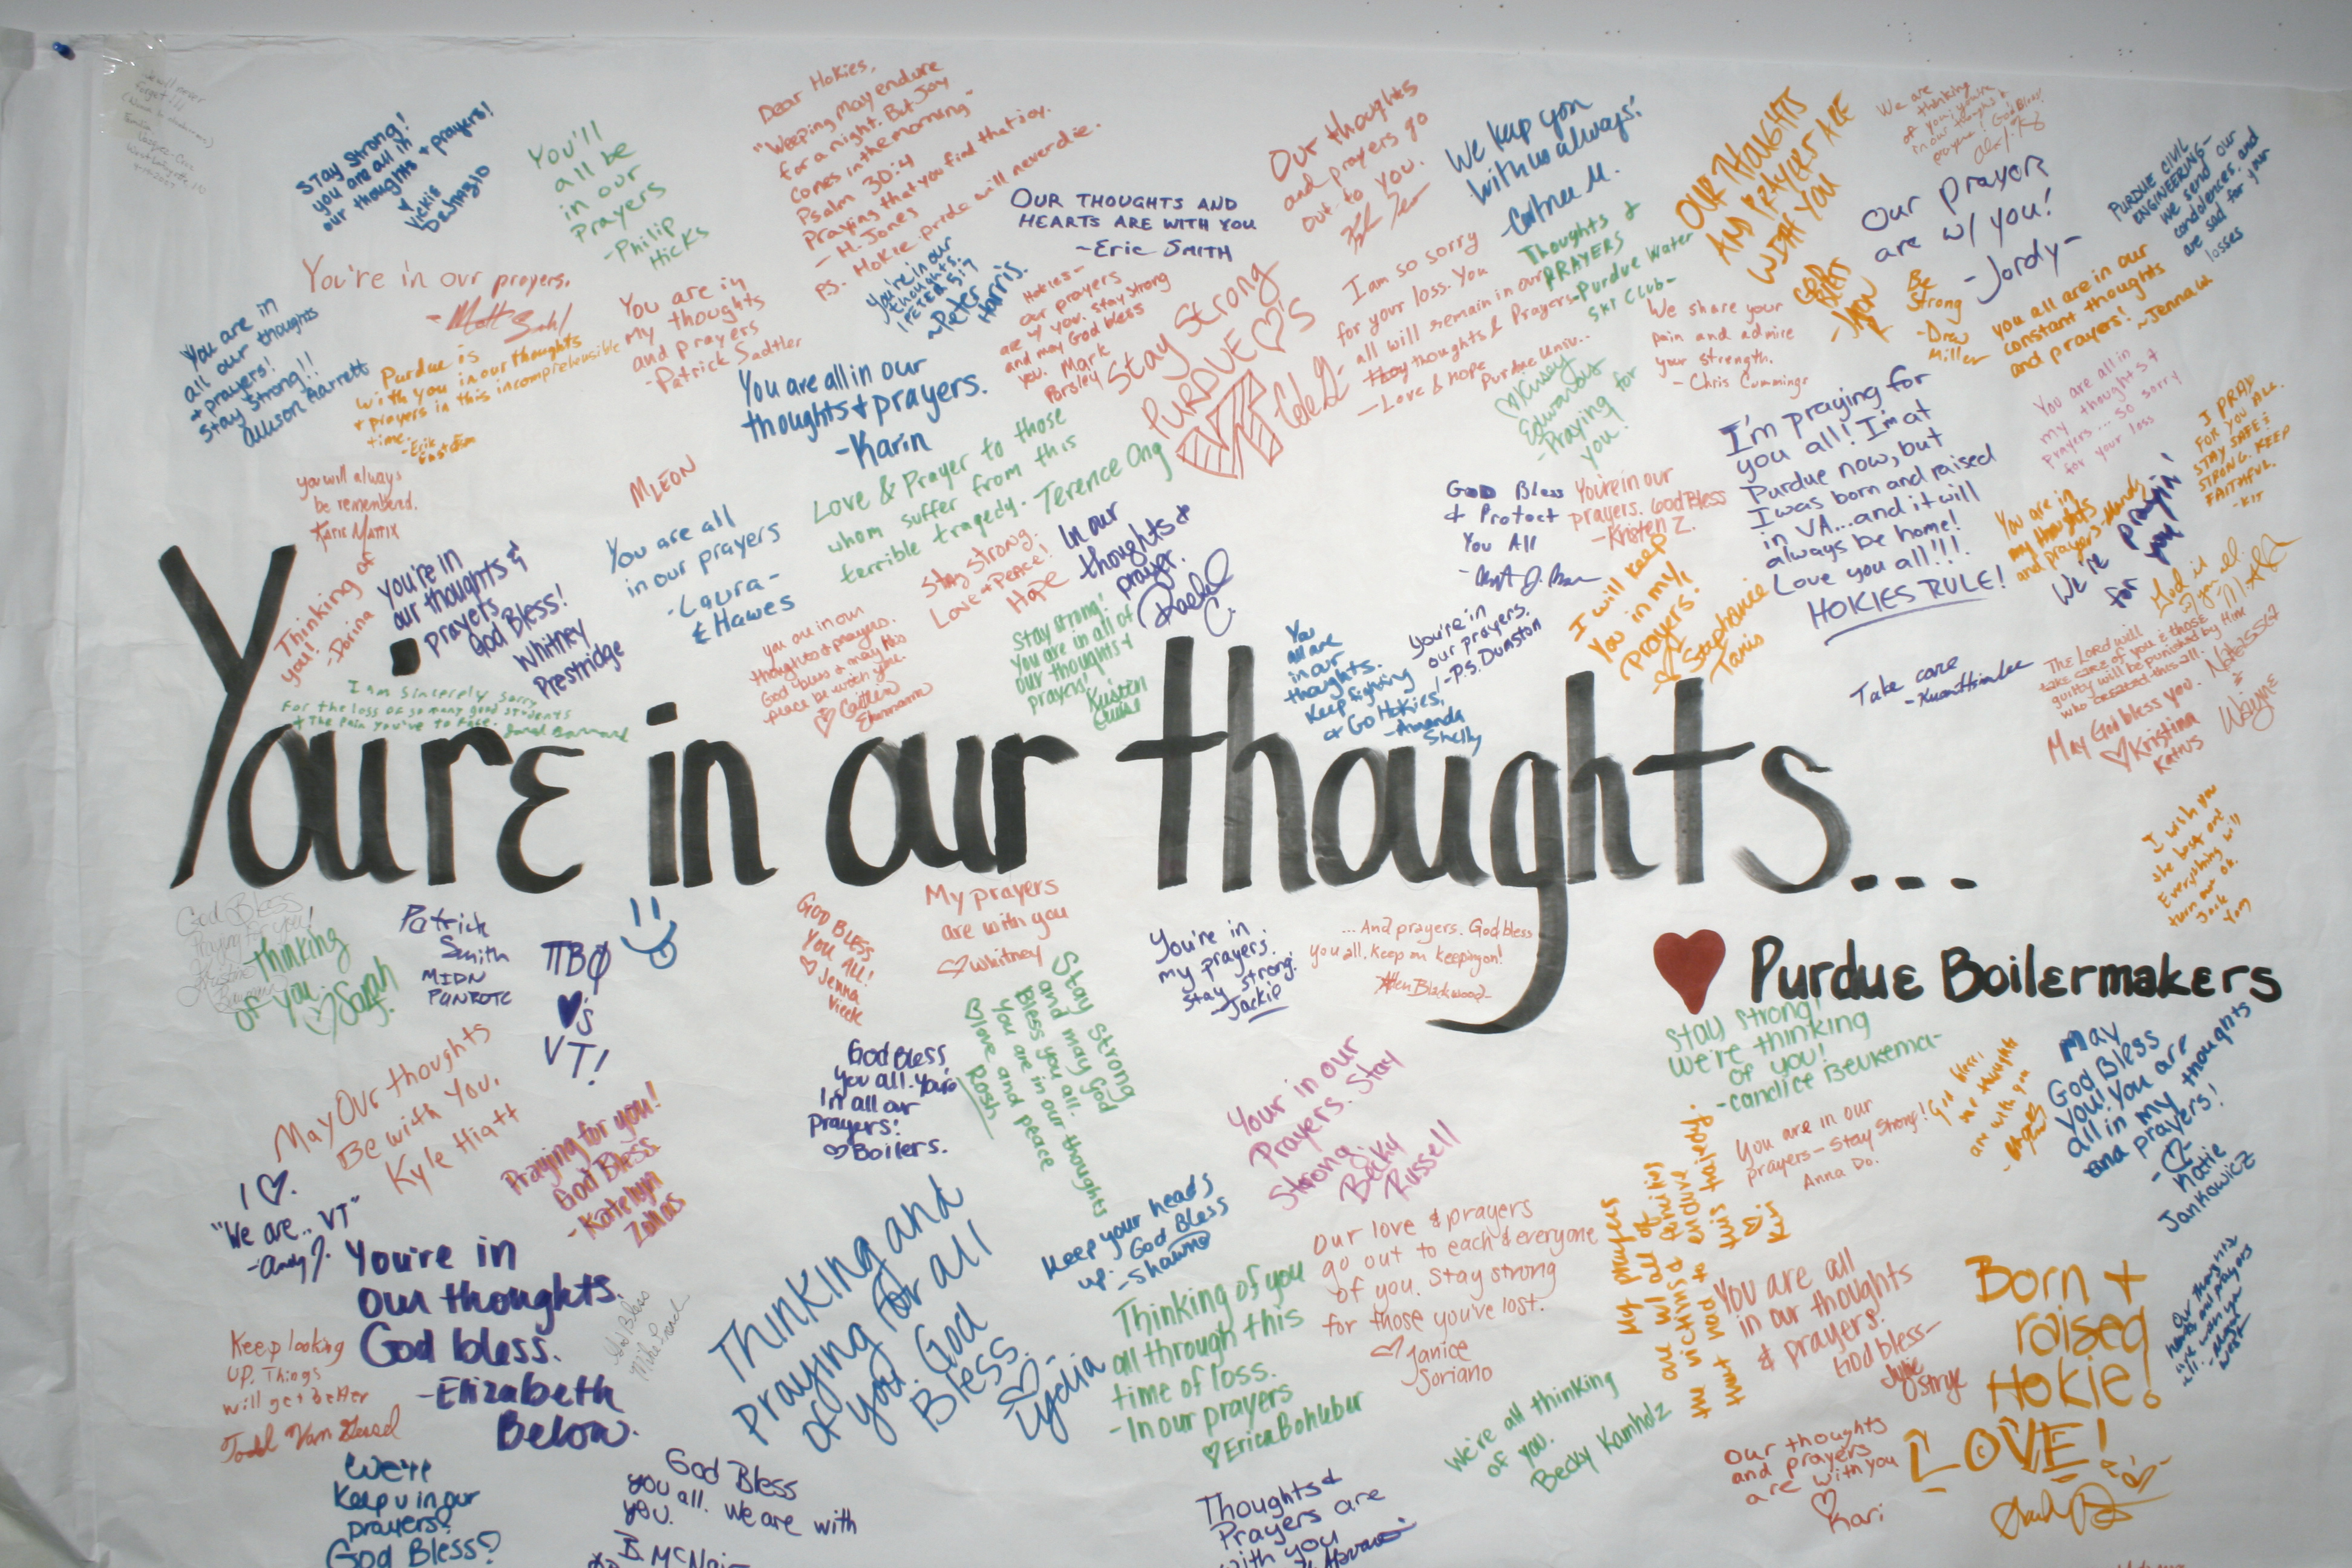 We will never
forget!!!
Stay Strong!
you are all in
our thoughts + prayers!
Vickie
DeSmazio
You'll
all be
in our
Prayers
-Philip
Hicks
Dear Hokies,
"Weeping may endure
for a night. But Joy
comes in the morning"
Psalm 30:4
Praying that you find that joy.
- H. Jones
ps. Hokie pride will never die.
OUR THOUGHTS AND
HEARTS ARE WITH YOU
~Eric SMITH
Our thoughts
and prayers go
out to you.
We keep you
with us always!
OUR THOUGHTS
AND PRAYERS ARE
WITH YOU
GOD
BLESS
We are
thinking
of you; you're
in our thoughts &
prayers! God Bless!
Our prayers
are w/ you!
-Jordy-
PURDUE CIVIL
ENGINEERING-
we send our
condolences and
are sad for your
losses
You're in our prayers.
You are in
my thoughts
and prayers
-Patrick Sadtler
You're in our
thoughts.
~Peter
Harris
Hokies-
our prayers
are w/ you. Stay strong
and may God bless
you. Mark
Parsley
Stay Strong
PURDUE ♡'S
VT
I am so sorry
for your loss. You
all will remain in our
thoughts & Prayers-
-Love & Hope Purdue Univ..
Thoughts &
PRAYERS
-Purdue Water
Ski Club-
We share your
pain and admire
your strength.
- Chris Cummings
Be
Strong
-Drew
Miller
you all are in our
constant thoughts
and prayers!
~Jenna W.
You are in
all our thoughts
+ prayers!
Stay Strong!!
Allison Garrett
Purdue is
with you in our thoughts
+ prayers in this incomprehensible
time.
You are all in our
thoughts + prayers.
-Karin
♡ Kinsey
Edwards
-Praying for
you!
I'm praying for
you all! I'm at
Purdue now, but
I was born and raised
in VA...and it will
always be home!
Love you all!!!
HOKIES RULE!
You are all in
my thoughts +
prayers... so sorry
for your loss
I PRAY
FOR YOU ALL.
STAY SAFE &
STRONG. KEEP
FAITHFUL.
-KIT
you will always
be remembered.
Katie Mattix
MLEON
Love & Prayer to those
whom suffer from this
terrible tragedy. Terence Ong
You are all
in our prayers
-Laura-
& Hawes
Stay strong.
Love & Peace!
Hope
In our
thoughts &
prayer.
Rachel
C.
God Bless
& Protect
You All
You're in our
prayers. God Bless
-Kristen Z.
You are in
my thoughts
and prayers -Mandy
We're prayin'
for you!
Thinking of
you!
-Dorina
You're in
our thoughts &
prayers
God Bless!
Whitney
Prestridge
I am sincerely sorry
For the loss of so many good students
+ The Pain you've to face.
you are in our
thoughts & prayers.
God bless & may his
peace be with you.
♡ Caitlin
Ehrmann
Stay strong!
You are in all of
our thoughts +
prayers!
Kristin
You
all are
in our
thoughts.
Keep fighting
+ Go Hokies,
-Amanda
Shelly
You're in
our prayers.
-P.S. Dunston
I will keep
You in my
Prayers!
Stephanie
Tanis
Take care
God is
The Lord will
take care of you & those
guilty will be punished by Him
who created this all.
May God bless you.
♡ Kristina
Katius
Wayne
You're in our thoughts...
♥ Purdue Boilermakers
I wish you
the best and
Everything will
turn out ok.
God Bless
Praying for you!
Thinking
of you.
♡ Sarah
Patrick
Smith
MIDN
PUNROTC
ΠΒΦ
♥'s
VT!
GOD BLESS
YOU ALL!
♡ Jenna
My prayers
are with you
♡ Whitney
Stay strong
and may God
Bless you all.
You are in our thoughts
♡ love and peace
Rosh
You're in
my prayers.
Stay strong.
-Jackie
...And prayers. God bless
you all. Keep on keeping on!
Stay strong!
We're thinking
of you!
-Candice Beukema-
God bless!
our thoughts
are with you
May
God Bless
You! You are
all in my thoughts
and prayers!
-Katie
Jankowicz
May Our thoughts
Be with You.
Kyle Hiatt
Praying for you!
God Bless
-Katelyn
Zollos
God Bless
you all. You're
In all our
Prayers!
♡ Boilers.
Your in our
Prayers. Stay
Strong.
Becky
Russell
You are in our
prayers - Stay Strong!
Anna Do.
I ♡.
"We are.. VT"
-Andy J.
You're in
our thoughts.
God bless.
-Elizabeth
Below.
God Bless
Keep looking
UP. Things
will get better
Thinking and
praying for all
of you. God
Bless.
♡ Lydia
Keep your heads
up. God Bless
-Shawna
Thinking of you
all through this
time of loss.
-In our prayers
♡ Erica Bohleber
Our love & prayers
go out to each & everyone
of you. Stay strong
for those you've lost.
♡ Janice
Soriano
My prayers
are w/ all of
the victims & families
that had to endure
this tragedy.
You are all
in our thoughts
& prayers.
God bless-
Julie
Ostrye
Born +
raised
Hokie!
LOVE!
Our thoughts
and prayers
are with you
♡ Kari
We're all thinking
of you.
Becky Kamholz
We'll
Keep u in our
prayers!
God Bless!
God Bless
you all. We are with
you.
Thoughts &
Prayers are
with you